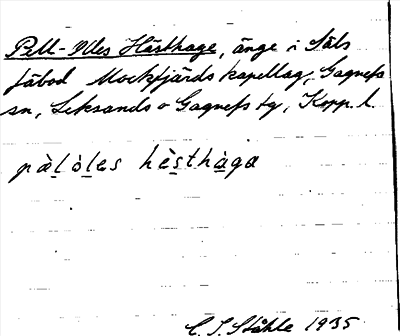 Pell-Olles Hästhage, änge i Säls
fäbod Mockfjärds kapellag, Gagnefs
sn, Leksands o Gagnefs tg, Kopp. l.
pàlòles hèsthàga
C. I. Ståhle 1935